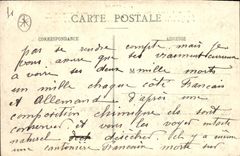 CARTE POSTALE
CORRESPONDANCE
ADRESSE
pas se rendre compte, mais je
vous assure que c'est vraiment curieux
à voir ses deux mille morts
un mille chaque côté Français
et Allemand. D'après une
composition chimique ils sont
conservés. et vous les voyez intacts
naturel desséchés. Ich y a même
une cantinière Française morte sur